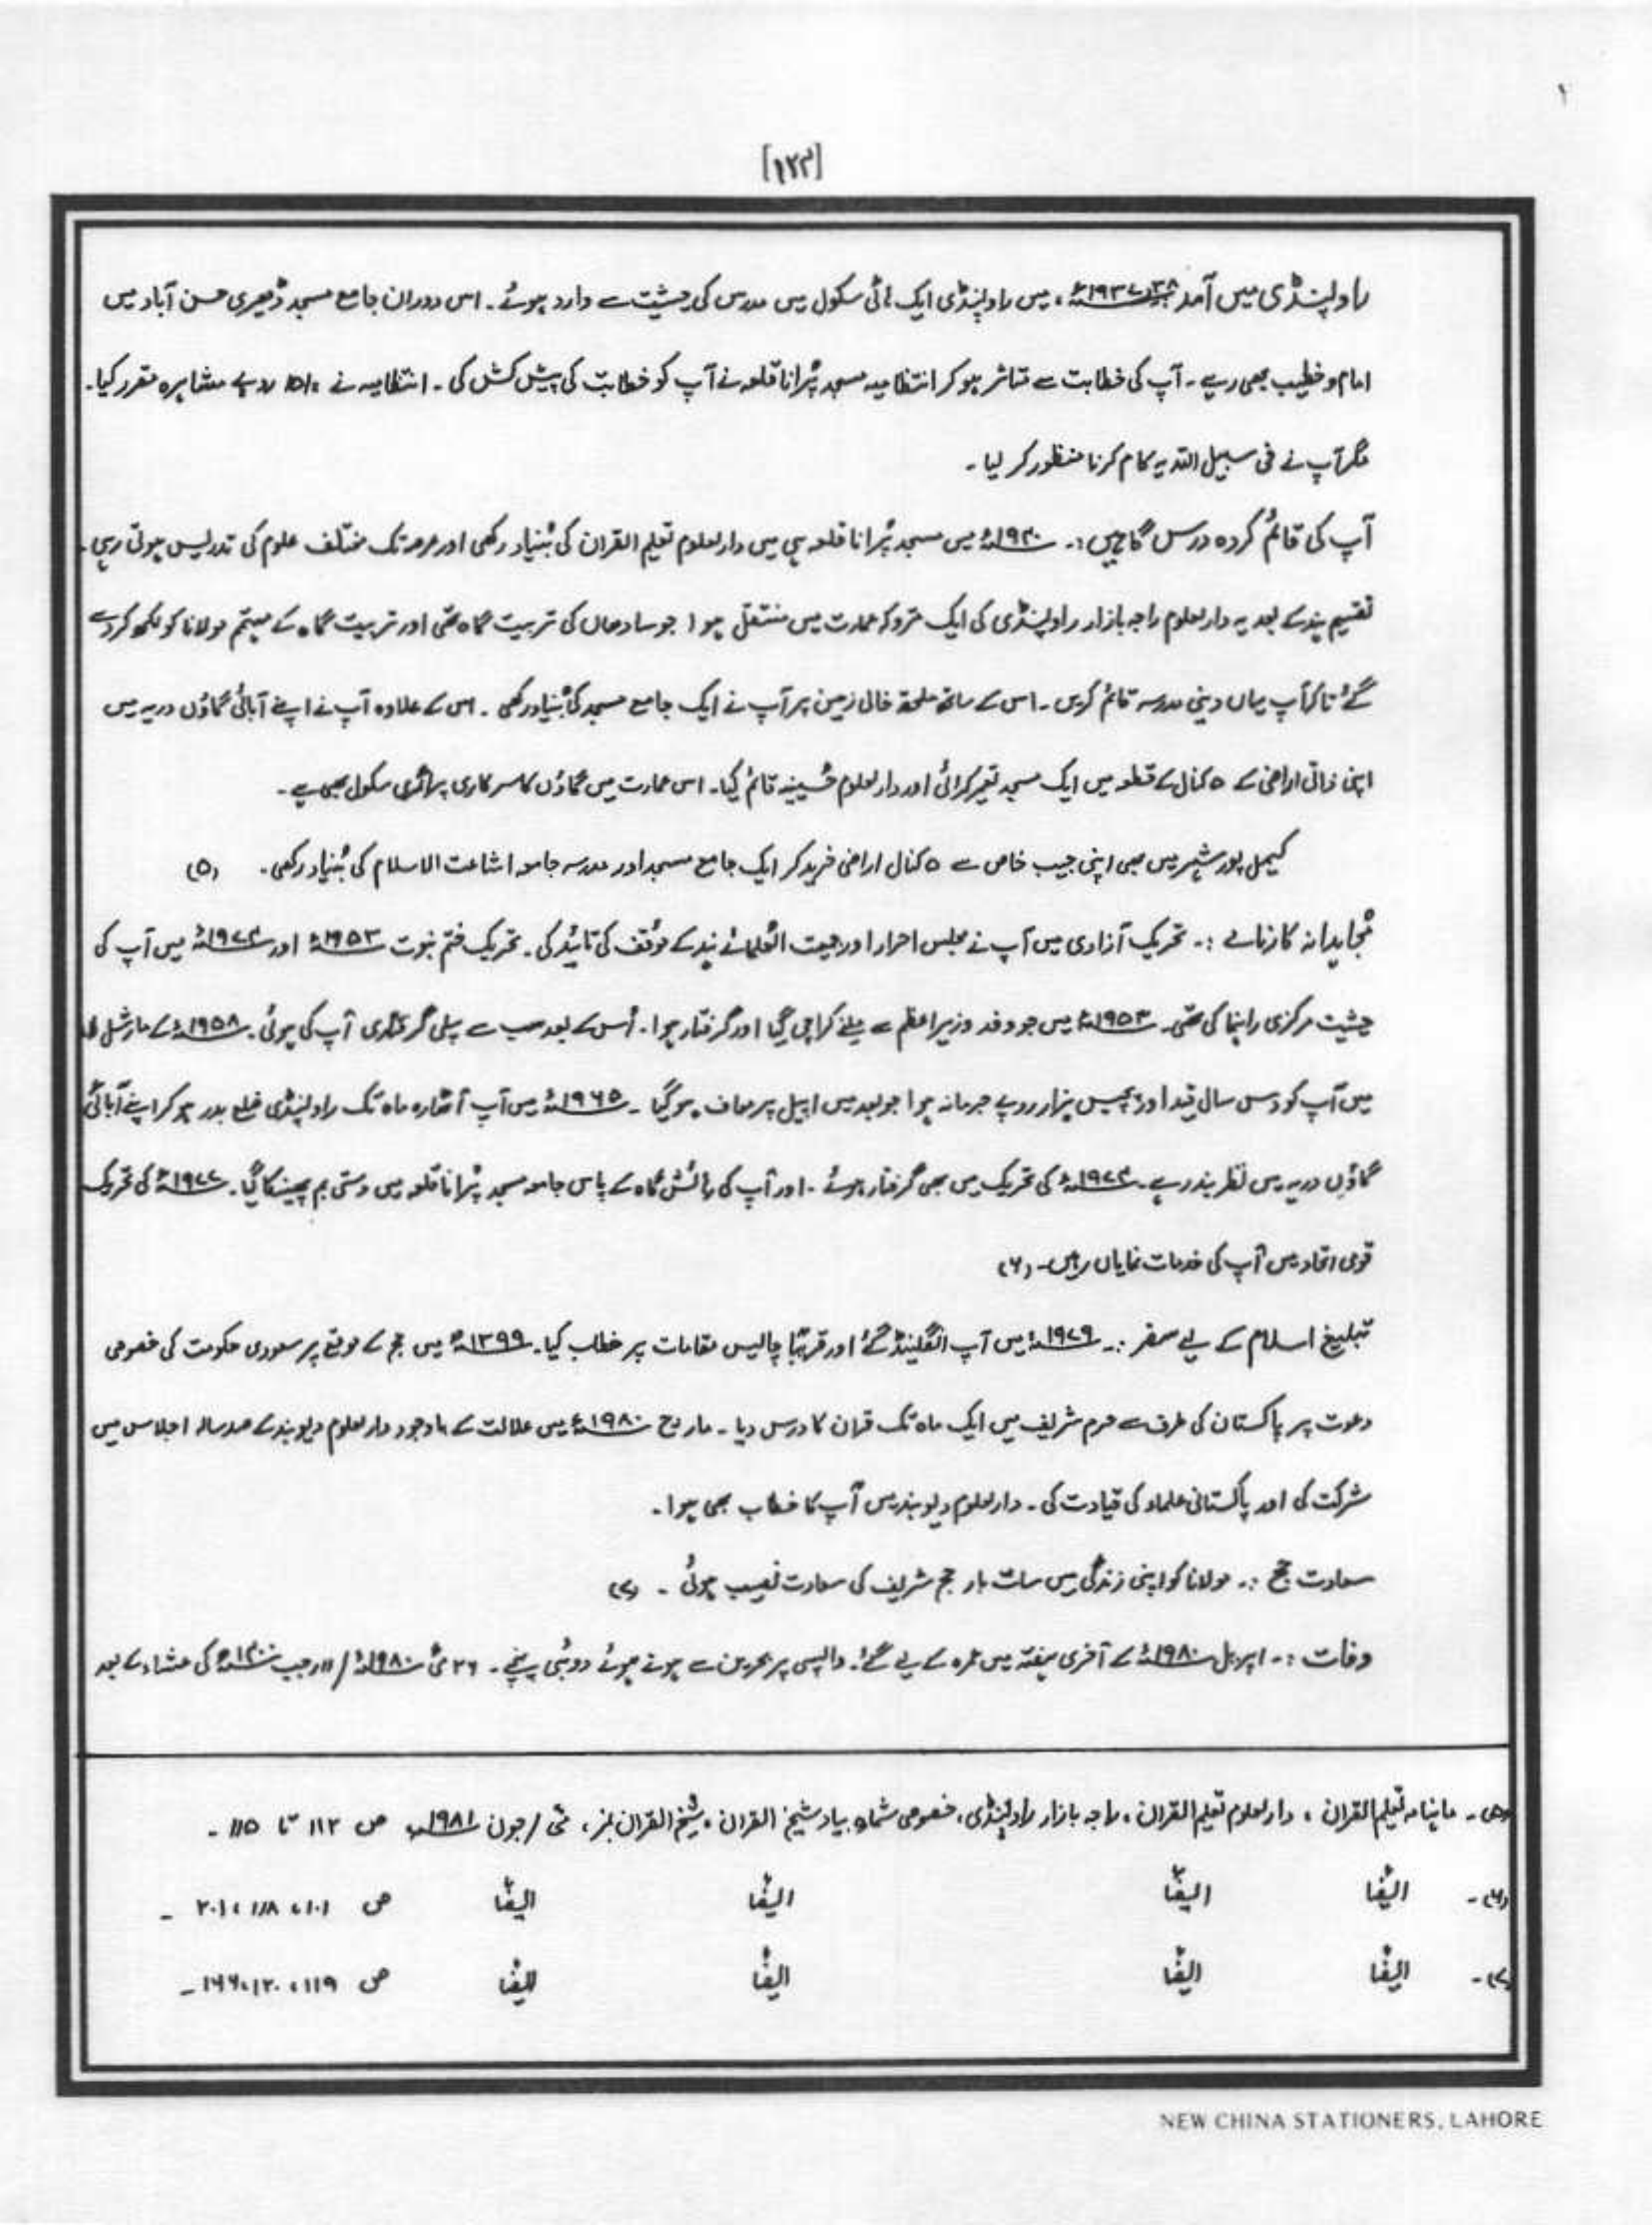 [۱۲۳]
راولپنڈی میں آمد ۱۹۳۷-۳۸ء، میں راولپنڈی ایک ہائی سکول میں مدرس کی حیثیت سے وارد ہوئے۔ اس دوران جامع مسجد ڈھیری حسن آباد میں
امام و خطیب بھی رہے۔ آپ کی خطابت سے متاثر ہو کر انتظامیہ مسجد پُرانا قلعہ نے آپ کو خطابت کی پیش کش کی۔ انتظامیہ نے روپے مشاہرہ مقرر کیا۔
مگر آپ نے فی سبیل اللہ یہ کام کرنا منظور کر لیا۔
آپ کی قائم کردہ درس گاہیں :۔ ۱۹۴۰ء میں مسجد پُرانا قلعہ ہی میں دارلعلوم تعلیم القران کی بُنیاد رکھی اور عرصہ تک مختلف علوم کی تدریس ہوتی رہی۔
تقسیم ہند کے بعد یہ دارلعلوم راجہ بازار راولپنڈی کی ایک متروکہ عمارت میں منتقل ہوا جو سادھاں کی تربیت گاہ تھی اور تربیت گاہ کے مہتمم مولانا کو لکھ کر دے
گئے تاکہ آپ یہاں دینی مدرسہ قائم کریں۔ اس کے ساتھ ملحقہ خالی زمین پر آپ نے ایک جامع مسجد کی بُنیاد رکھی۔ اس کے علاوہ آپ نے اپنے آبائی گاؤں دریہ میں
اپنی ذاتی اراضی کے ۵ کنال کے قطعہ میں ایک مسجد تعمیر کرائی اور دارلعلوم حُسینیہ قائم کیا۔ اس عمارت میں گاؤں کا سرکاری پرائمری سکول بھی ہے۔
کیمبل پور شہر میں بھی اپنی جیب خاص سے ۵ کنال اراضی خرید کر ایک جامع مسجد اور مدرسہ جامعہ اشاعت الاسلام کی بُنیاد رکھی۔ (۵)
مُجاہدانہ کارنامے :۔ تحریک آزادی میں آپ نے مجلس احرار اور جمیعت العُلمائے ہند کے موقف کی تائید کی۔ تحریک ختم نبوت ۱۹۵۳ء اور ۱۹۷۴ء میں آپ کی
حیثیت مرکزی راہنما کی تھی۔ ۱۹۵۳ء میں جو وفد وزیراعظم سے ملنے کراچی گیا اور گرفتار ہوا۔ اُس کے بعد سب سے پہلی گرفتاری آپ کی ہوئی۔ ۱۹۵۸ء کے مارشل لا
میں آپ کو دس سال قید اور پچیس ہزار روپے جرمانہ ہوا جو بعد میں اپیل پر معاف ہو گیا۔ ۱۹۶۵ء میں آپ اٹھارہ ماہ تک راولپنڈی ضلع بدر ہو کر اپنے آبائی
گاؤں دریہ میں نظر بند رہے۔ ۱۹۷۴ء کی تحریک میں بھی گرفتار ہوئے۔ اور آپ کی رہائش گاہ کے پاس جامعہ مسجد پُرانا قلعہ میں دستی بم پھینکا گیا۔ ۱۹۷۷ء کی تحریک
قومی اتحاد میں آپ کی خدمات نمایاں رہیں۔ (۶)
تبلیغ اسلام کے لیے سفر :۔ ۱۹۷۹ء میں آپ انگلینڈ گئے اور قریبًا چالیس مقامات پر خطاب کیا۔ ۱۳۹۹ھ میں حج کے موقع پر سعودی حکومت کی خصوصی
دعوت پر پاکستان کی طرف سے حرم شریف میں ایک ماہ تک قران کا درس دیا۔ مارچ ۱۹۸۰ء میں علالت کے باوجود دارلعلوم دیوبند کے صد سالہ اجلاس میں
شرکت کی اور پاکستانی علماء کی قیادت کی۔ دارلعلوم دیوبند میں آپ کا خطاب بھی ہوا۔
سعادت حج :۔ مولانا کو اپنی زندگی میں سات بار حج شریف کی سعادت نصیب ہوئی۔ (۷)
وفات :۔ اپریل ۱۹۸۰ء کے آخری ہفتہ میں عمرہ کے لیے گئے۔ واپسی پر بحرین سے ہوتے ہوئے دوبئی پہنچے۔ ۲۶ مئی ۱۹۸۰ء / ۱۱ رجب ۱۴۰۰ھ کی عشاء کے بعد
(۵)۔ ماہنامہ تعلیم القران، دارلعلوم تعلیم القران، راجہ بازار راولپنڈی، خصوصی شمارہ بیاد شیخ القران، شیخ القران نمبر، مئی / جون ۱۹۸۱ء ص ۱۱۲ تا ۱۱۵۔
(۶)۔ ایضًا ایضًا ایضًا ایضًا ص ۱۰۱، ۱۱۸، ۲۰۱۔
(۷)۔ ایضًا ایضًا ایضًا ایضًا ص ۱۱۹، ۱۲۰، ۱۶۶۔
NEW CHINA STATIONERS, LAHORE